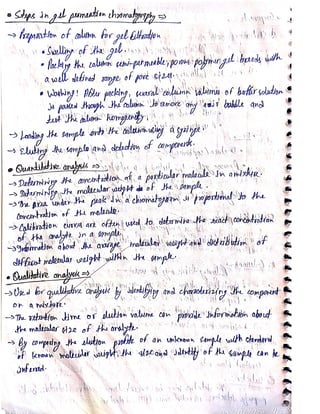 • Steps in gel permeation chromatography ⇒
→ Preparation of column for gel filtration
• Swelling of the gel.
• Packing the column semi-permeable, porous polymer gel beads with
a well defined range of pore size.
• Washing: After packing, several column volumes of buffer solution
is passed through the column to remove any air bubble and
test the column homogeneity.
→ Loading the sample onto the column using a syringe.
→ Eluting the sample and detection of components.
• Quantitative analysis ⇒
→ Determining the concentration of a particular molecule in a mixture.
→ Determining the molecular weight of the sample.
→ The area under the peak in a chromatogram is proportional to the
concentration of the molecule.
→ Calibration curves are often used to determine the exact concentration
of the analyte in a sample.
→ Information about the average molecular weight and distribution of
different molecular weight within the sample.
• Qualitative analysis ⇒
→ Used for qualitative analysis by identifying and characterizing the component
on a mixture.
→ The retention time or elution volume can provide information about
the molecular size of the analyte.
→ By comparing the elution profile of an unknown sample with standard
of known molecular weight, the size and identity of the sample can be
inferred.